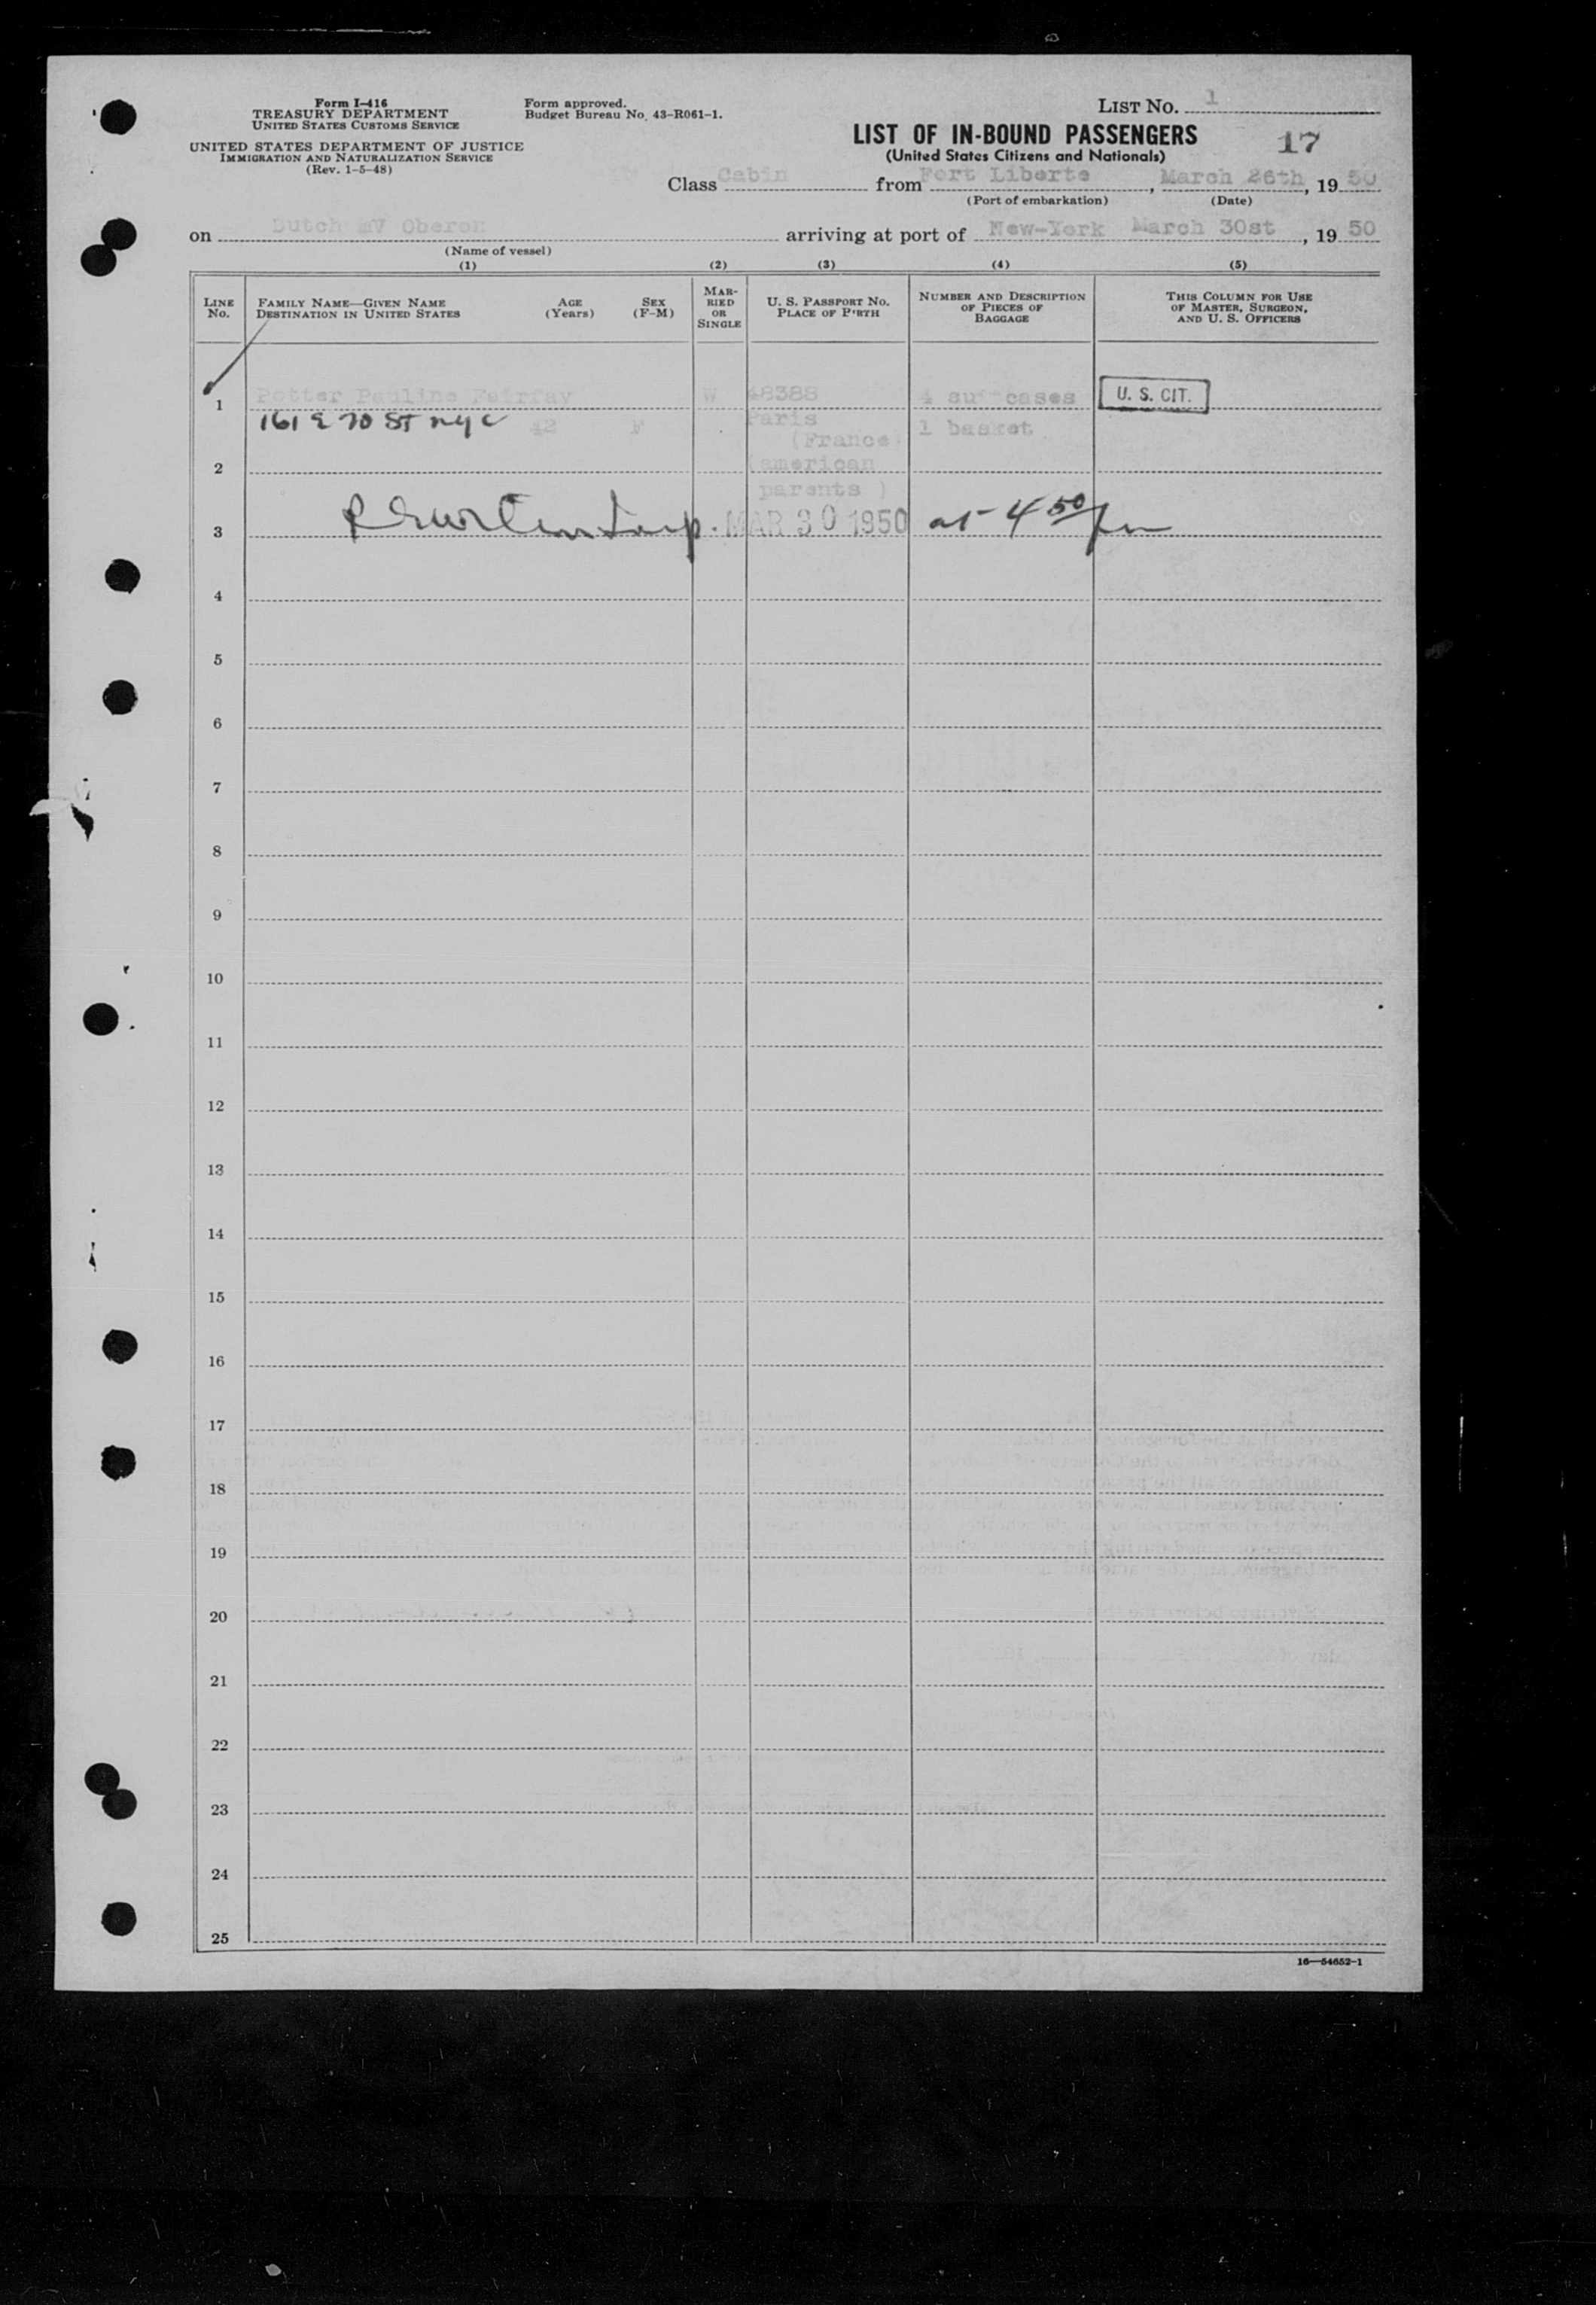 Form I-416
TREASURY DEPARTMENT
UNITED STATES CUSTOMS SERVICE
UNITED STATES DEPARTMENT OF JUSTICE
IMMIGRATION AND NATURALIZATION SERVICE
(Rev. 1-5-48)
Form approved.
Budget Bureau No. 43-R061-1.
LIST NO. 1
LIST OF IN-BOUND PASSENGERS
(United States Citizens and Nationals)
17
Class Cabin from Fort Liberte, March 26th, 19 50
(Port of embarkation) (Date)
on Dutch MV Oberon arriving at port of New-York March 30st, 19 50
(Name of vessel)
(1) (2) (3) (4) (5)
LINE NO.
FAMILY NAME—GIVEN NAME
DESTINATION IN UNITED STATES
AGE (Years)
SEX (F-M)
MARRIED OR SINGLE
U. S. PASSPORT NO.
PLACE OF BIRTH
NUMBER AND DESCRIPTION OF PIECES OF BAGGAGE
THIS COLUMN FOR USE OF MASTER, SURGEON, AND U. S. OFFICERS
1 Potter Pauline Fairfax W 48388 4 suitcases U. S. CIT.
161 E 70 ST NYC 42 F Paris 1 basket
(France
2 (american
parents )
3 MAR 30 1950 at 4 50 pm
4
5
6
7
8
9
10
11
12
13
14
15
16
17
18
19
20
21
22
23
24
25
16—54652-1